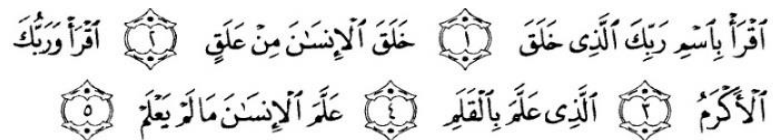 ٱقۡرَأۡ بِٱسۡمِ رَبِّكَ ٱلَّذِى خَلَقَ ١ خَلَقَ ٱلۡإِنسَٰنَ مِنۡ عَلَقٍ ٢ ٱقۡرَأۡ وَرَبُّكَ
ٱلۡأَكۡرَمُ ٣ ٱلَّذِى عَلَّمَ بِٱلۡقَلَمِ ٤ عَلَّمَ ٱلۡإِنسَٰنَ مَا لَمۡ يَعۡلَمۡ ٥